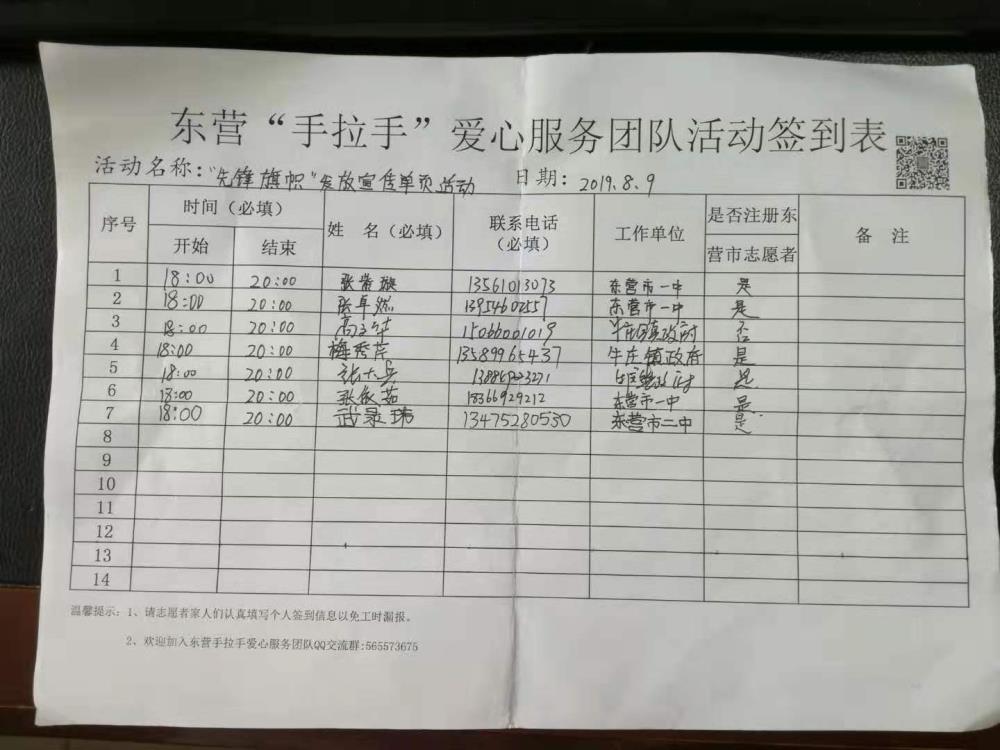 东营“手拉手”爱心服务团队活动签到表
活动名称：“先锋旗帜”发放宣传单页活动 日期：2019.8.9
序号 时间（必填） 姓 名（必填） 联系电话（必填） 工作单位 是否注册东营市志愿者 备 注
开始 结束
1 18:00 20:00 13561013073 东营市一中 是
2 18:00 20:00 张卓燃 13954602557 东营市一中 是
3 18:00 20:00 高立华 15066001019 牛庄镇政府 否
4 18:00 20:00 梅秀芹 13589965437 牛庄镇政府 是
5 18:00 20:00 牛庄镇政府 是
6 18:00 20:00 18366929212 东营市一中 是
7 18:00 20:00 武录玮 13475280530 东营市二中 是
8
9
10
11
12
13
14
温馨提示：1、请志愿者家人们认真填写个人签到信息以免工时漏报。
2、欢迎加入东营手拉手爱心服务团队QQ交流群:565573675